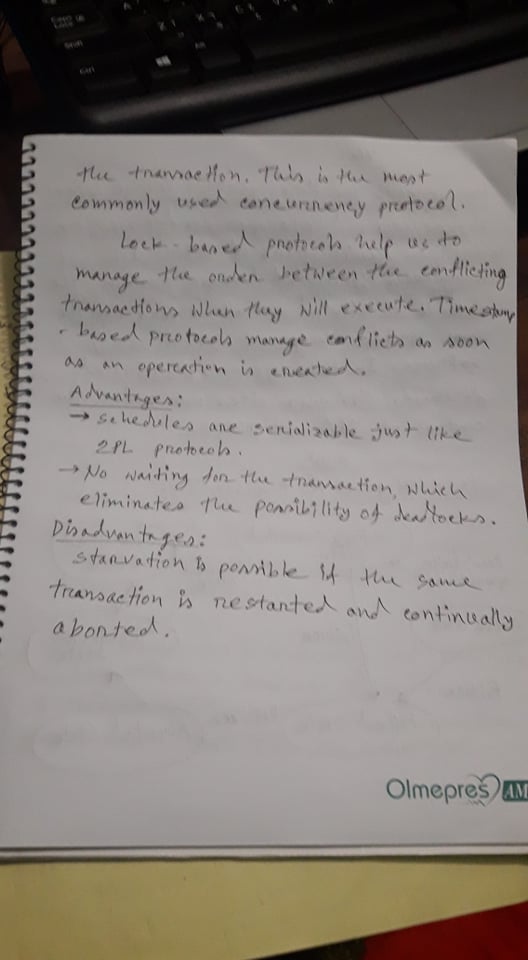 the transaction. This is the most
commonly used concurrency protocol.
Lock-based protocols help us to
manage the order between the conflicting
transactions when they will execute. Timestamp
-based protocols manage conflicts as soon
as an operation is created.
Advantages:
→ Schedules are serializable just like
2PL protocols.
→ No waiting for the transaction, which
eliminates the possibility of deadlocks.
Disadvantages:
Starvation is possible if the same
transaction is restarted and continually
aborted.
Olmepres AM
Caps Lock
Shift
Ctrl
Alt
Z X